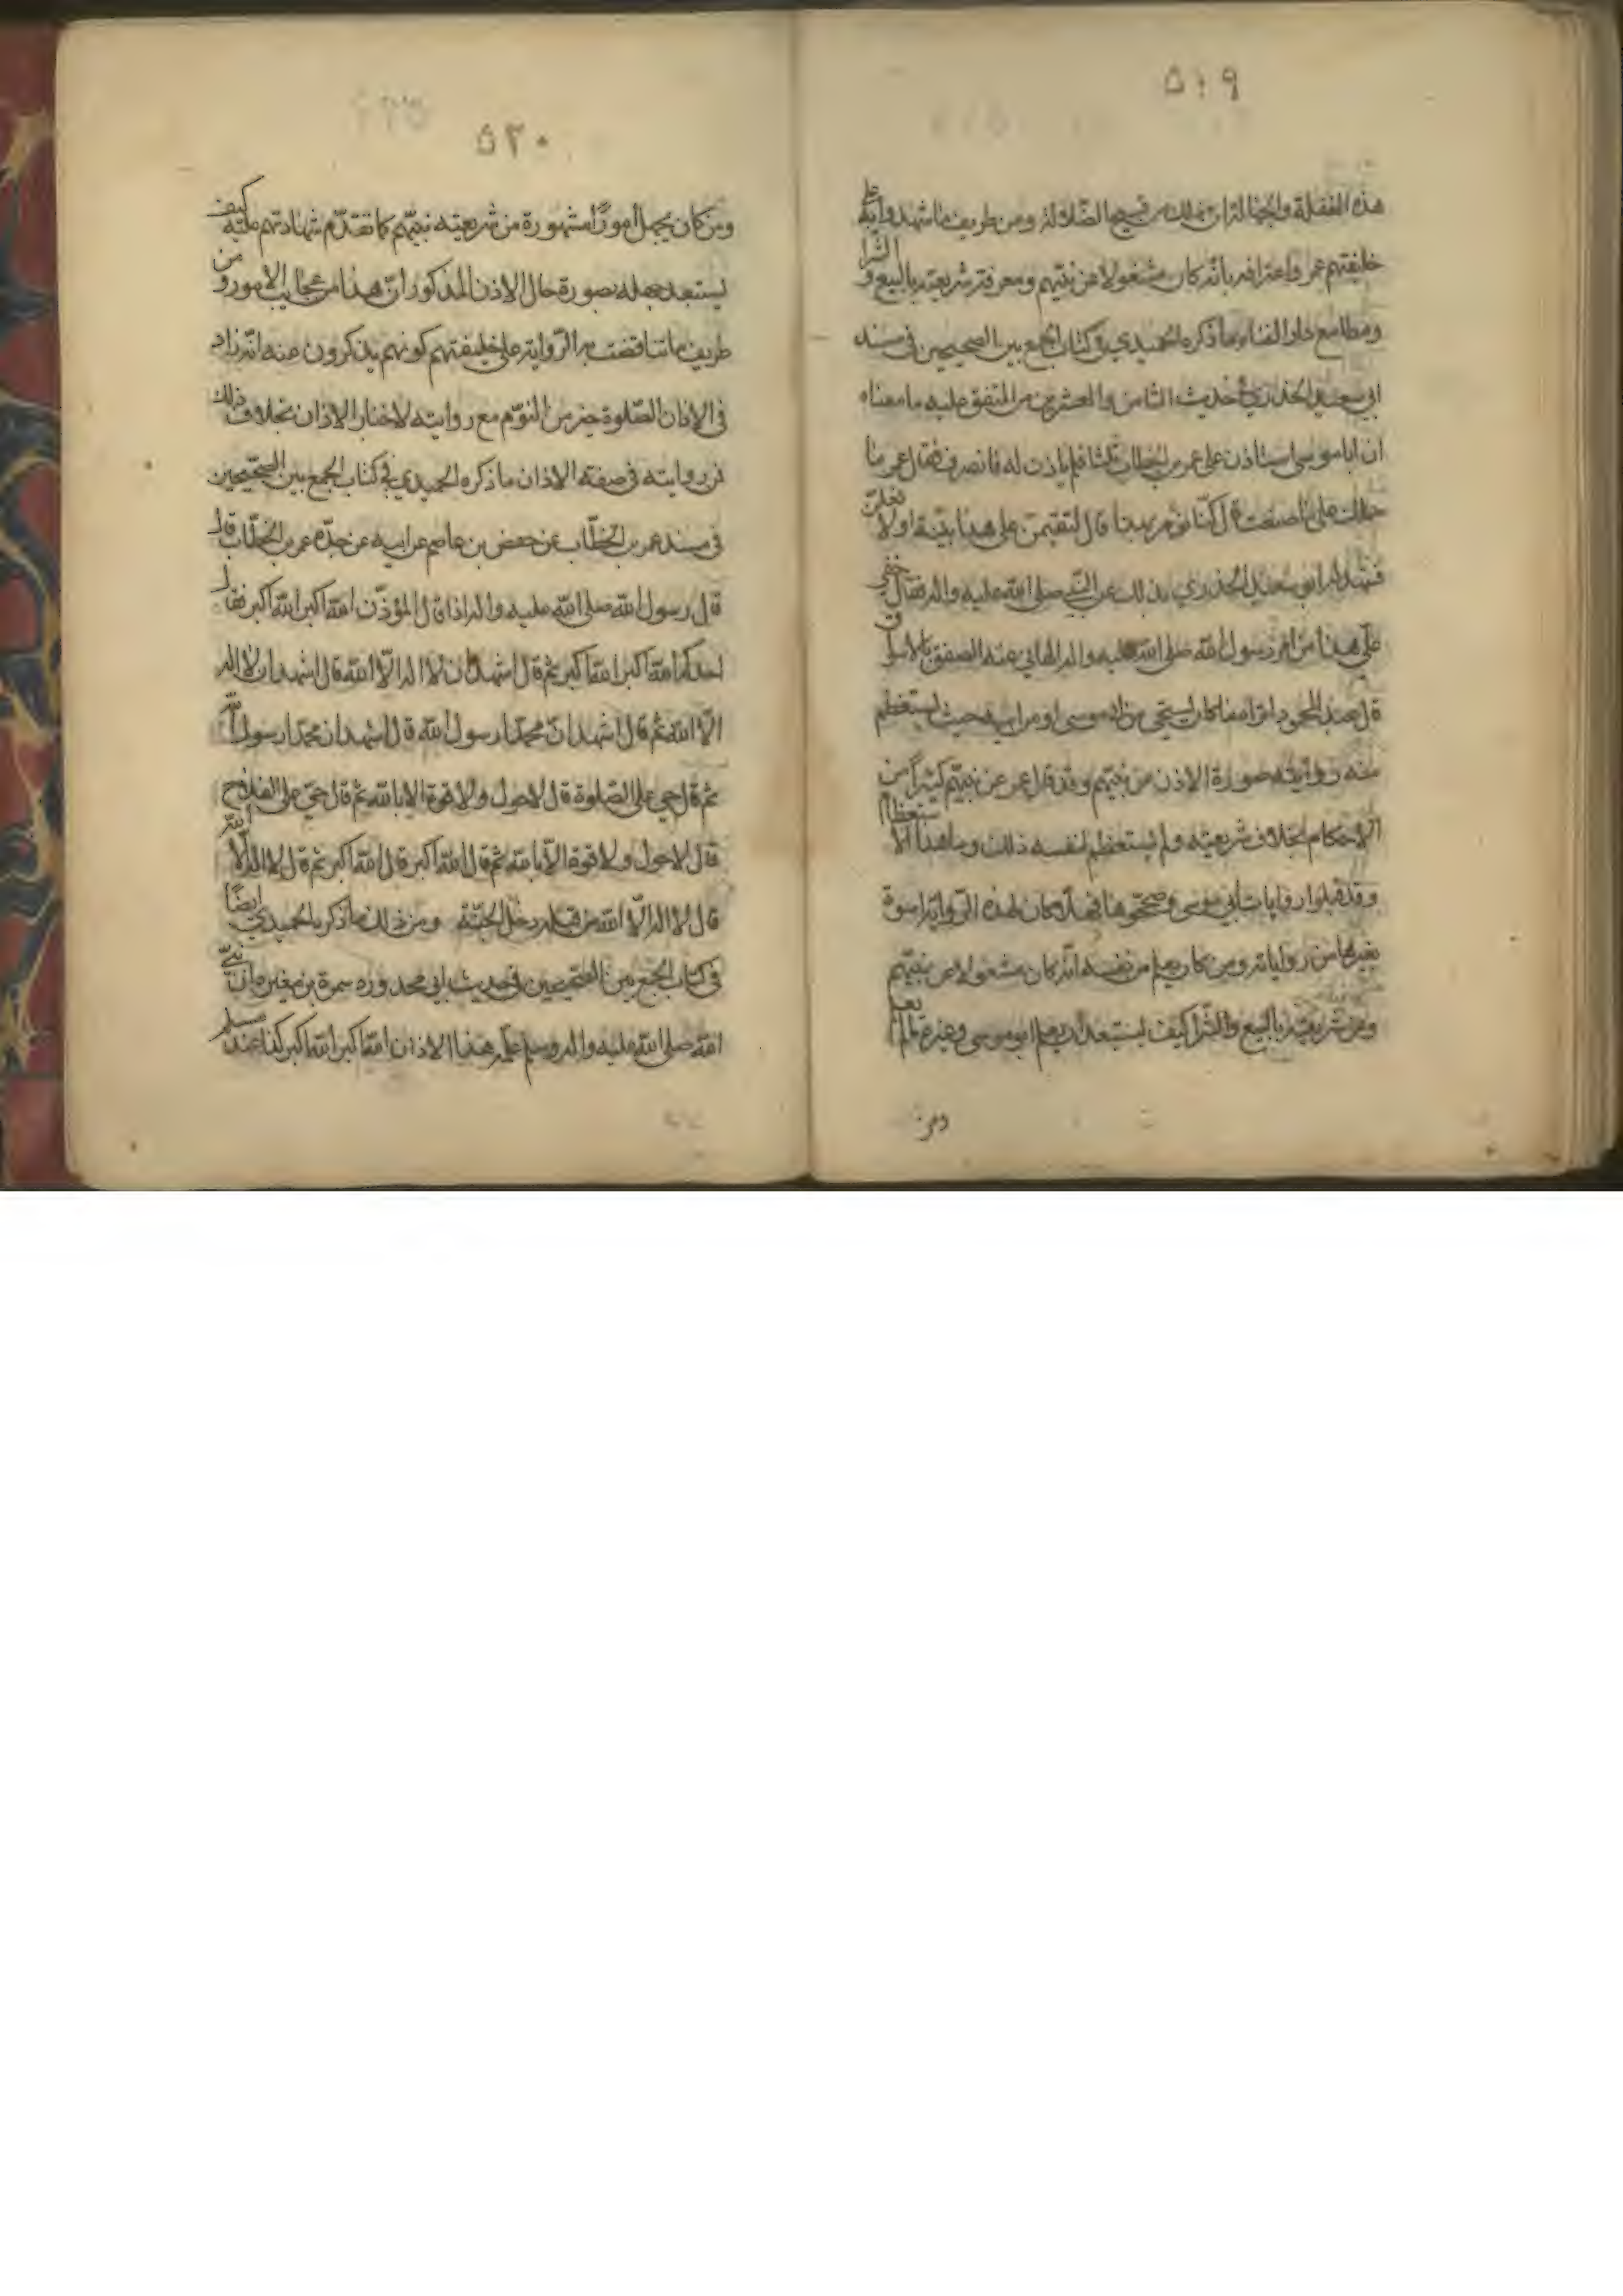 ٥١٩
هذه الغفلة والجهالة ان ذلك من قبيح الضلالة ومن طريف ما شهدوا به على
خليفتهم عمر واعترافه بانه كان مشغولا عن نبيهم ومعرفة شريعته بالبيع والشرا
ومطامع دار الفناء ما ذكره الحميدي في كتاب الجمع بين الصحيحين في مسند
ابي سعيد الخدري في الحديث الثامن والعشرين من المتفق عليه ما معناه
ان ابا موسى استاذن على عمر بن الخطاب ثلثا فلم ياذن له فانصرف فقال عمر ما
حملك على ما صنعت قال كنا نؤمر بهذا قال لتقيمن على هذا بينة او لا فعلن
فشهد له ابو سعيد الخدري بذلك عن النبي صلى الله عليه واله فقال خفي
على هذا من امر رسول الله صلى الله عليه واله الهاني عنه الصفق بالاسواق
قال عبد المحمود اما كان يستحي من ابي موسى او من ابي سعيد حيث يستعظم
منه روايته صورة الاذن من نبيهم وقد قبل عمر عن نبيهم كثيرا من
الاحكام بخلاف شريعته ولم يستعظم لنفسه ذلك وما هذا الاستعظام
وقد قبلوا روايات ابي موسى وصححوها فهلا كان لهذه الرواية اسوة
بغيرها من رواياته ومن كان يعلم من نفسه انه كان مشغولا عن نبيهم
وعن شريعته بالبيع والشرا كيف يستبعد ان يعلم ابو موسى وغيره ما لم يعلم
ومن
٥٢٠
ومن كان يجهل امورا مشهورة من شريعته نبيهم كما تقدم شهادتهم عليه كيف
يستبعد جهله بصورة حال الاذن المذكور ان هذا من عجايب الامور و من
طريف ما تناقضت به الرواية على خليفتهم كونهم يذكرون عنه انه زاد
في الاذان الصلوة خير من النوم مع روايته لاخبار الاذان بخلاف ذلك
فمن روايته في صفة الاذان ما ذكره الحميدي في كتاب الجمع بين الصحيحين
في مسند عمر بن الخطاب عن حفص بن عاصم عن ابيه عن جده عمر بن الخطاب قال
قال رسول الله صلى الله عليه واله اذا قال المؤذن الله اكبر الله اكبر فقال
احدكم الله اكبر الله اكبر ثم قال اشهد ان لا اله الا الله قال اشهد ان لا اله
الا الله ثم قال اشهد ان محمدا رسول الله قال اشهد ان محمدا رسول الله
ثم قال حي على الصلوة قال لا حول ولا قوة الا بالله ثم قال حي على الفلاح
قال لا حول ولا قوة الا بالله ثم قال الله اكبر قال الله اكبر ثم قال لا اله الا الله
قال لا اله الا الله من قلبه دخل الجنة ومن ذلك ما ذكره الحميدي ايضا
في كتاب الجمع بين الصحيحين في حديث ابي محذورة سمرة بن مغيرة ان نبي
الله صلى الله عليه واله وسلم علمه هذا الاذان الله اكبر الله اكبر كذا عند مسلم